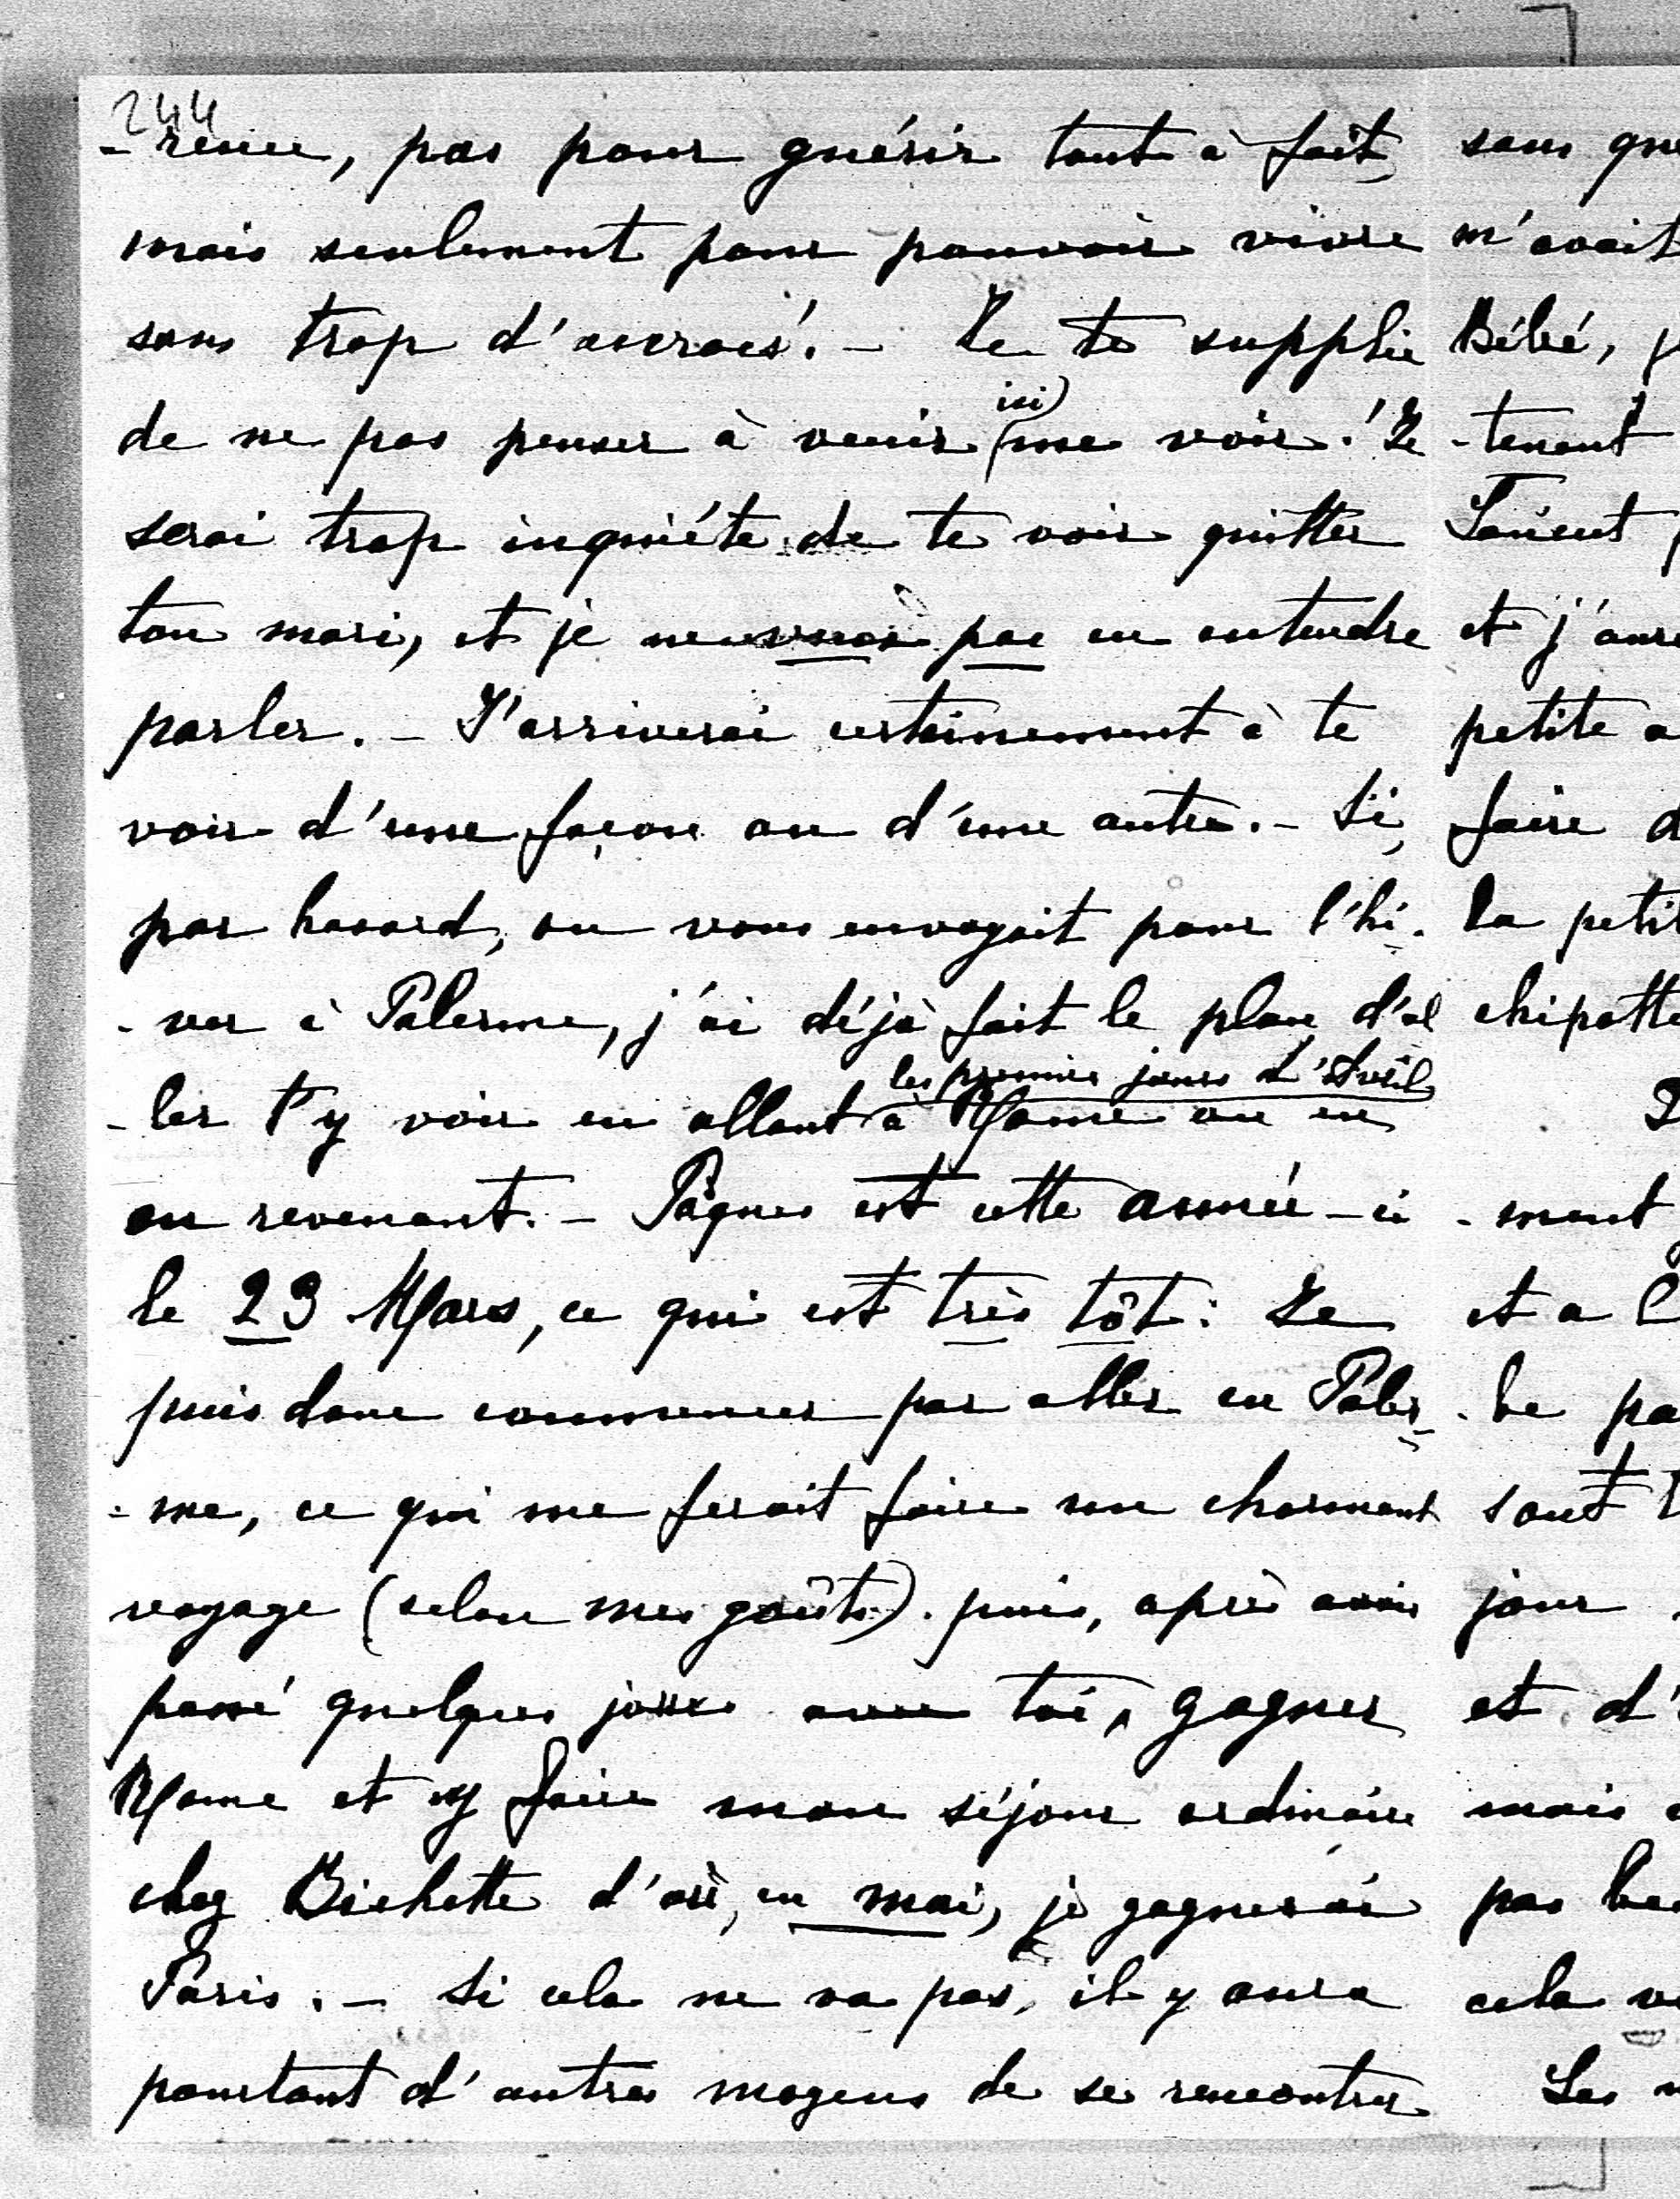 244
-reuse, pas pour guérir tout à fait
mais seulement pour pouvoir vivre
sans trop d'accrocs. - Je te supplie
de ne pas penser à venir (ici) me voir! Je
serai trop inquiéte de te voir quitter
ton mari, et je ne veux pas en entendre
parler. - J'arriverai certainement à te
voir d'une façon ou d'une autre. - Si,
par hasard, on vous envoyait pour l'hi-
-ver à Palerme, j'ai déjà fait le plan d'al
les premiers jours d'Avril
-ler t'y voir en allant à Rome ou en
en revenant. - Pâques est cette année-ci
le 23 Mars, ce qui est très tôt: Je
puis donc commencer par aller en Paler-
-me, ce qui me ferait faire un charmant
voyage (selon mes goûts). puis, après avoir
passé quelques jours avec toi, gagner
Rome et y faire mon séjour ordinaire
chez Bichette d'où, en mai, je gagnerai
Paris. - Si cela ne va pas, il y aura
pourtant d'autres moyens de se rencontrer
sans que
m'avait
Bébé,
-tenant
et j'aur
petite a
faire d
la petit
chipotte
-ment
et a
pa
sont
jour
et d'
mais
pas
cela
Les